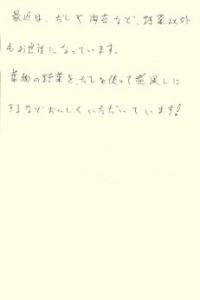 最近は、だしや海苔など、野菜以外
もお世話になっています。
菜畑の野菜を、だしを使って蒸しに
するなどおいしくいただいています!